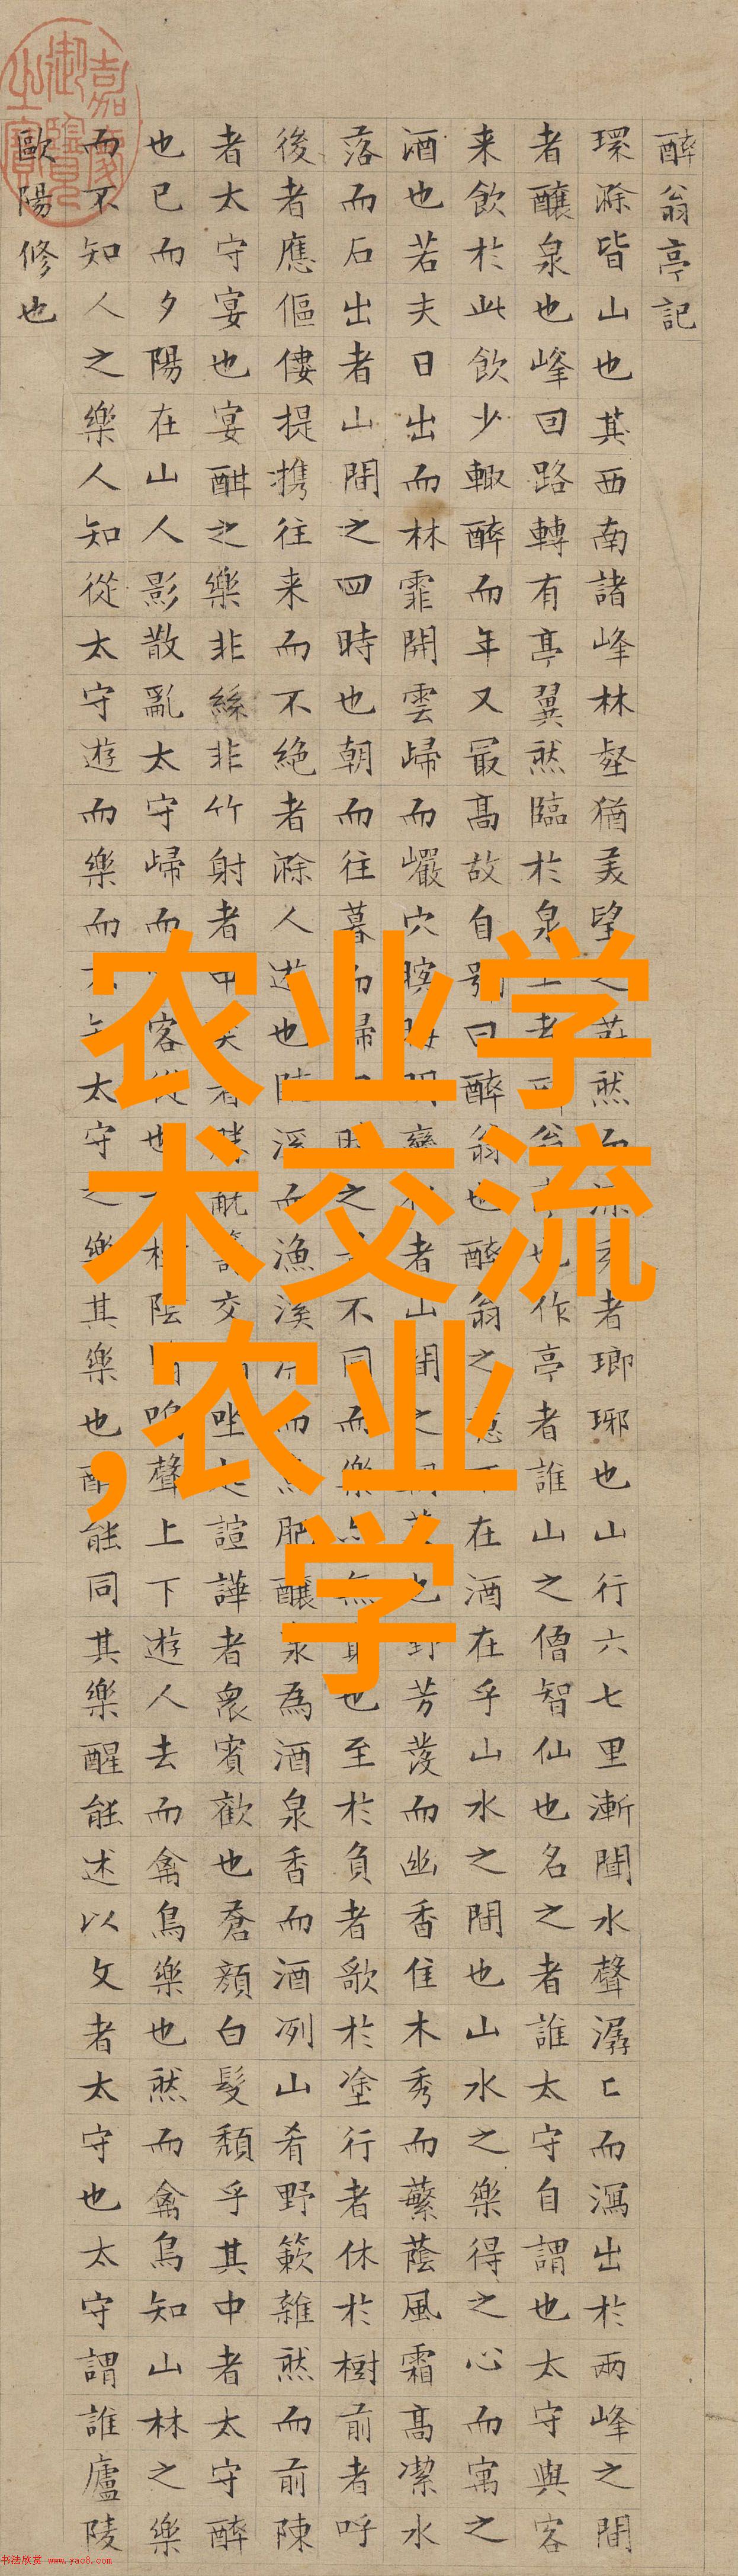 醉翁亭記
環滁皆山也其西南諸峰林壑猶美望之蔚然而深秀者瑯琊也山行六七里漸聞水聲潺〻而瀉出於兩峰之間
者釀泉也峰回路轉有亭翼然臨於泉上者醉翁亭也作亭者誰山之僧智仙也名之者誰太守自謂也太守與客
来飲於此飲少輒醉而年又最高故自號曰醉翁也醉翁之意不在酒在乎山水之間也山水之樂得之心而寓之
酒也若夫日出而林霏開雲歸而巖穴暝晦明變者山間之也野芳發而幽香佳木秀而蘩蔭風霜高潔水
落而石出者山間之四時也朝而往暮而歸時之不同而樂亦無也至於負者歌於塗行者休於樹前者呼
後者應傴僂提攜往来而不絕者滁人遊也臨溪而漁溪而肥釀泉為酒泉香而酒冽山肴野蔌雜然而前陳
者太守宴也宴酣之樂非絲非竹射者中者勝觥籌交坐起諠譁者衆賓歡也蒼顔白髮頹乎其中者太守醉
也已而夕陽在山人影散亂太守歸而客從也林陰鳴聲上下遊人去而禽鳥樂也然而禽鳥知山林之樂
而不知人之樂人知從太守遊而樂而不知太守之樂其樂也醉能同其樂醒能述以文者太守也太守謂誰廬陵
歐陽修也
嘉慶御覽之寶
农业学
术交流
,农业
学
书法欣赏 www.yac8.com